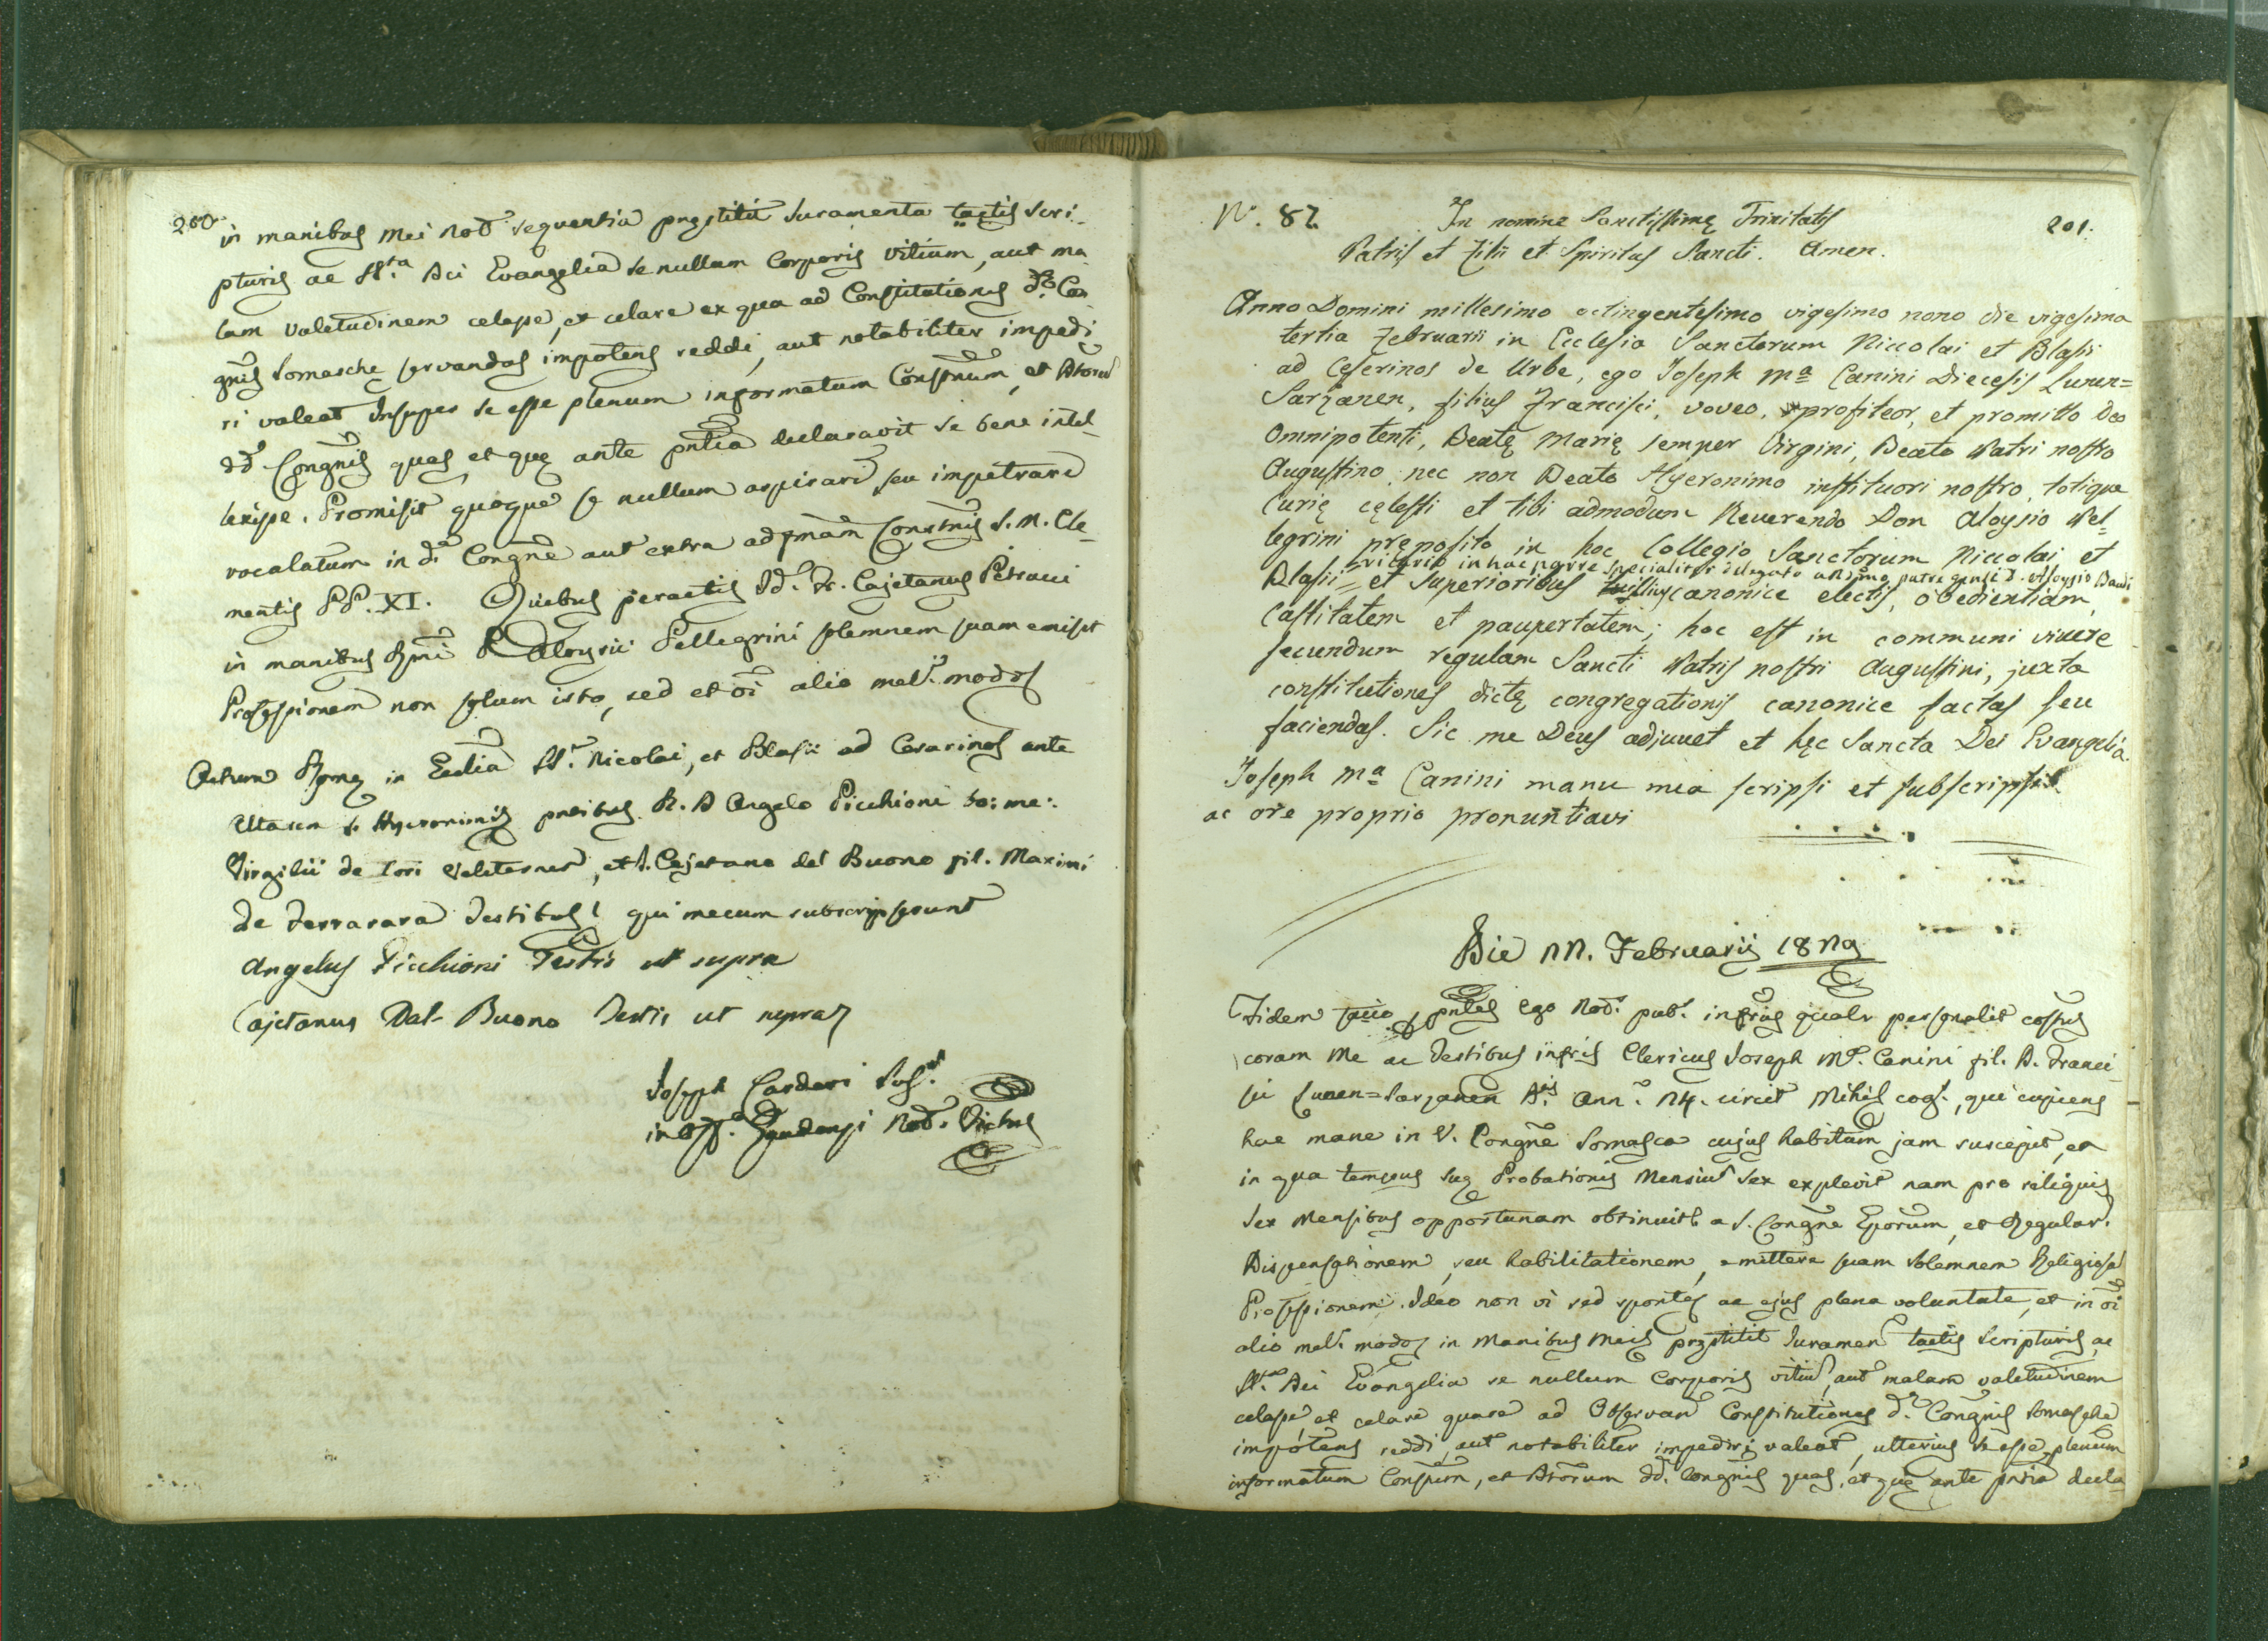 200
in manibus mei Not. sequentia pręstitit Juramenta tactis Scri-
pturis ac SS.ta Dei Evangelia se nullum Corporis vitium, aut ma
lam valetudinem celasse, et celare ex qua ad Constitutiones dę Con
gnis Somaschę servandas impotens reddi, aut notabiliter impedi
ri valeat Insuper se esse plenum informatum Constnum, et
dd. Congnis quas, et quę ante pntia declaravit se bene intel-
lexisse. Promisit quoque se nullum aspirare seu impetrare
vocalatum in da Congne aut extra ad fmam Constnis S. M. Cle-
mentis PP. XI. Quibus peractis Id. Fr. Cajetanus Petrucci
in manibus Rmi P. Aloysii Pellegrini solemnem suam emisit
Professionem non solum isto, sed et oi alio mel. modo
Actum Romę in Ecclia SS. Nicolai, et Blasii ad Cesarinos ante
Altare S. Hyeronimi pntibus R. D Angelo Picchioni bo: me:
Virgilii de Iori Veliternus, et D. Cajetano del Buono fil. Maximi
de Ferrara Testibus qui mecum subscripserunt
Angelus Picchioni Testis ut supra
Cajetanus Dal-Buono Testis ut supra
Joseph Cardari Sus.
in off. Gaudenzi Not. Victus
N. 82.
In nomine Sanctissimę Trinitatis
201.
Patris et Filii et Spiritus Sancti. Amen.
Anno Domini millesimo octingentesimo vigesimo nono die vigesima
tertia Februarii in Ecclesia Sanctorum Niccolai et Blasii
ad Ceserinos de Urbe, ego Joseph Ma Canini Diecesis Lunen=
Sarzanen, filius Francisci, voveo, profiteor, et promitto Deo
Omnipotenti, Beatę Marię semper Virgini, Beato Patri nostro
Augustino, nec non Beato Hyeronimo institutori nostro, totique
Curię cęlesti et tibi admodum Reverendo Don Aloysio Pel-
legrini pręposito in hoc Collegio Sanctorum Niccolai et
vicario in hac parte specialiter delegato a Rdmo patre genli D. Aloysio Baudi
Blasii et Superioribus illius canonice electis, obedientiam,
Castitatem et paupertatem; hoc est in communi vivere
secundum regulam Sancti Patris nostri Augustini, juxta
constitutiones dictę congregationis canonice factas seu
faciendas. Sic me Deus adjuvet et hęc Sancta Dei Evangelia.
Joseph Ma Canini manu mea scripsi et subscripsi
ac ore proprio pronuntiavi
Die 22. Februarij 1829
Fidem facio ptes Ego Not. pub. infrus qualr personalit costus
coram me ac Testibus infris Clericus Joseph Ma. Canini fil. D. Franci-
sci Lunen=Sarzanen Ann. 24. circit Mihi cog., qui cupiens
hac mane in V. Congne Somasca cujus habitum jam suscepit, et
in qua tempus suę Probationis Mensium Sex explevit nam pro reliquis
Sex Mensibus opportunam obtinuit a S. Congne Eporum, et Regular.
Dispensationem, seu habilitationem, emittere suam Solemnem Religiosa
Professionem. Ideo non vi sed sponte, ac ejus plena voluntate, et in oi
alio mel. modo, in Manibus Meis pręstitit Juramen tactis Scripturis, ac
SS. Dei Evangelia se nullum Corporis vitiu, aut malam valetudinem
celasse, et celare quare ad Observan Constitutiones d. Congnis Somaschę
impotens reddi, aut notabiliter impediri valeat, ulterius se esse plenum
informatum Constum, et dd. Congnis quas, et quę ante pntia decla-